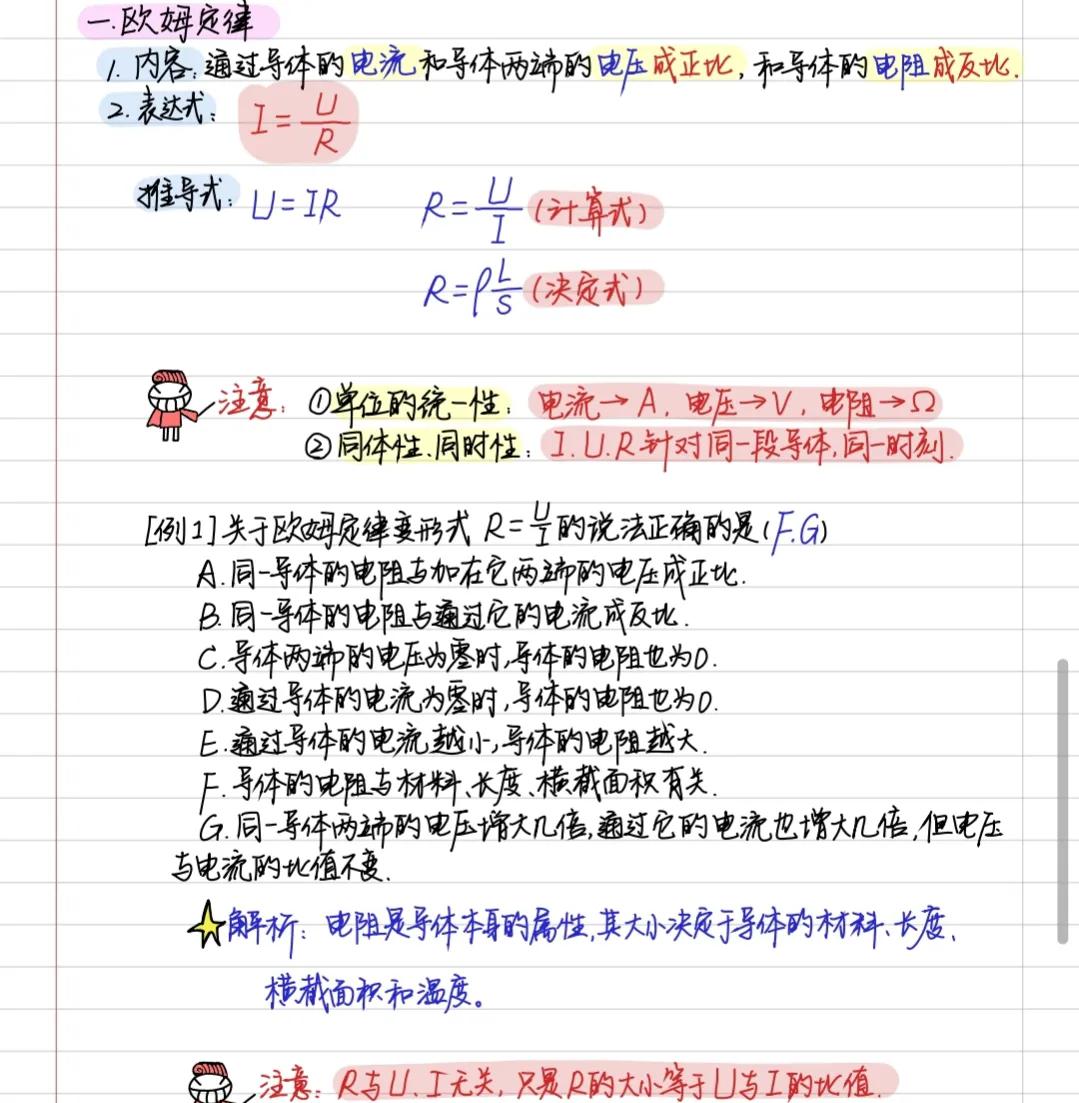 一.欧姆定律
1.内容:通过导体的电流和导体两端的电压成正比,和导体的电阻成反比.
2.表达式: I=U/R
推导式: U=IR R=U/I (计算式)
R=ρL/S (决定式)
注意: ①单位的统一性: 电流→A, 电压→V, 电阻→Ω
②同体性、同时性: I.U.R针对同一段导体,同一时刻.
[例1]关于欧姆定律变形式 R=U/I的说法正确的是(F.G)
A.同一导体的电阻与加在它两端的电压成正比.
B.同一导体的电阻与通过它的电流成反比.
C.导体两端的电压为零时,导体的电阻也为0.
D.通过导体的电流为零时,导体的电阻也为0.
E.通过导体的电流越小,导体的电阻越大.
F.导体的电阻与材料、长度、横截面积有关.
G.同一导体两端的电压增大几倍,通过它的电流也增大几倍,但电压
与电流的比值不变.
解析: 电阻是导体本身的属性,其大小决定于导体的材料、长度、
横截面积和温度。
注意: R与U、I无关, 只是R的大小等于U与I的比值.